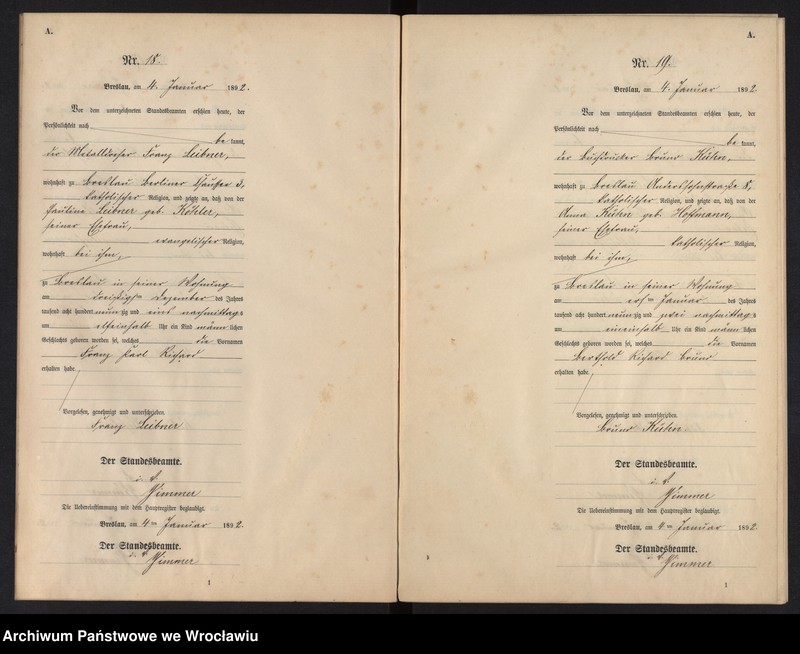 A.
Nr. 18.
Breslau, am 4. Januar 1892.
Vor dem unterzeichneten Standesbeamten erschien heute, der
Persönlichkeit nach
be kannt,
der Metalldreher Franz Leibner,
wohnhaft zu Breslau Berliner Chaussee
katholischer Religion, und zeigte an, daß von der
Pauline Leibner geb. Köhler,
seiner Ehefrau,
evangelischer Religion,
wohnhaft bei ihm,
zu Breslau in seiner Wohnung
am dreißigsten Dezember des Jahres
tausend acht hundert neunzig und eins nachmittags
um elfeinhalb Uhr ein Kind männlichen
Geschlechts geboren worden sei, welches die Vornamen
Franz Carl Richard
erhalten habe.
Vorgelesen, genehmigt und unterschrieben.
Franz Leibner
Der Standesbeamte.
Zimmer
Die Uebereinstimmung mit dem Hauptregister beglaubigt.
Breslau, am 4ten Januar 1892.
Der Standesbeamte.
Zimmer
1
A.
Nr. 19.
Breslau, am 4. Januar 1892
Vor dem unterzeichneten Standesbeamten erschien heute, der
Persönlichkeit nach
be kannt,
der Buchdrucker Bruno Kühn,
wohnhaft zu Breslau Anderssohnstraße 8,
katholischer Religion, und zeigte an, daß von der
Anna Kühn geb. Hoffmann,
seiner Ehefrau,
katholischer Religion,
wohnhaft bei ihm,
zu Breslau in seiner Wohnung
am ersten Januar des Jahres
tausend acht hundert neunzig und zwei nachmittags
um eineinhalb Uhr ein Kind männlichen
Geschlechts geboren worden sei, welches die Vornamen
Berthold Richard Bruno
erhalten habe.
Vorgelesen, genehmigt und unterschrieben.
Bruno Kühn
Der Standesbeamte.
Zimmer
Die Uebereinstimmung mit dem Hauptregister beglaubigt.
Breslau, am 4ten Januar 1892.
Der Standesbeamte.
Zimmer
1
Archiwum Państwowe we Wrocławiu